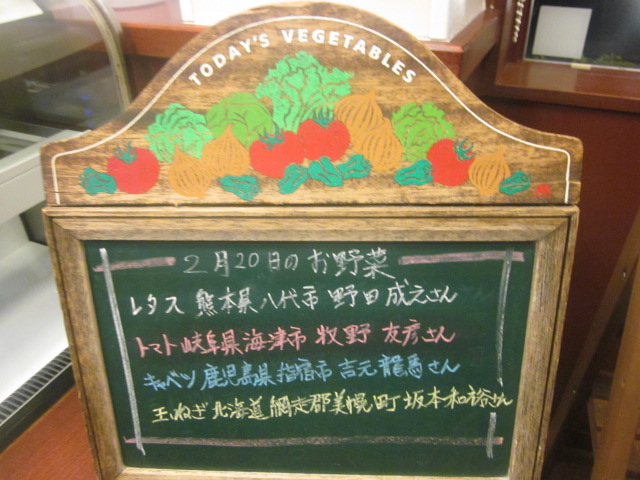 TODAY'S VEGETABLES
2月20日のお野菜
レタス 熊本県八代市 野田 成之さん
トマト 岐阜県海津市 牧野 友彦さん
キャベツ 鹿児島県指宿市 吉元 龍馬さん
玉ねぎ 北海道 網走郡美幌町 坂本和裕さん